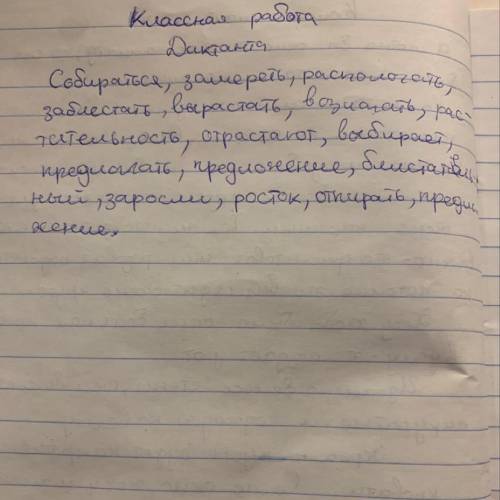 Классная работа
Диктанта
Собираться, замереть, распологать,
заблестать, вырастать, возлагать, рас-
тительность, отрастают, выбирает,
предлагать, предложение, блистатель-
ный, заросли, росток, отпирать, предло
жение.